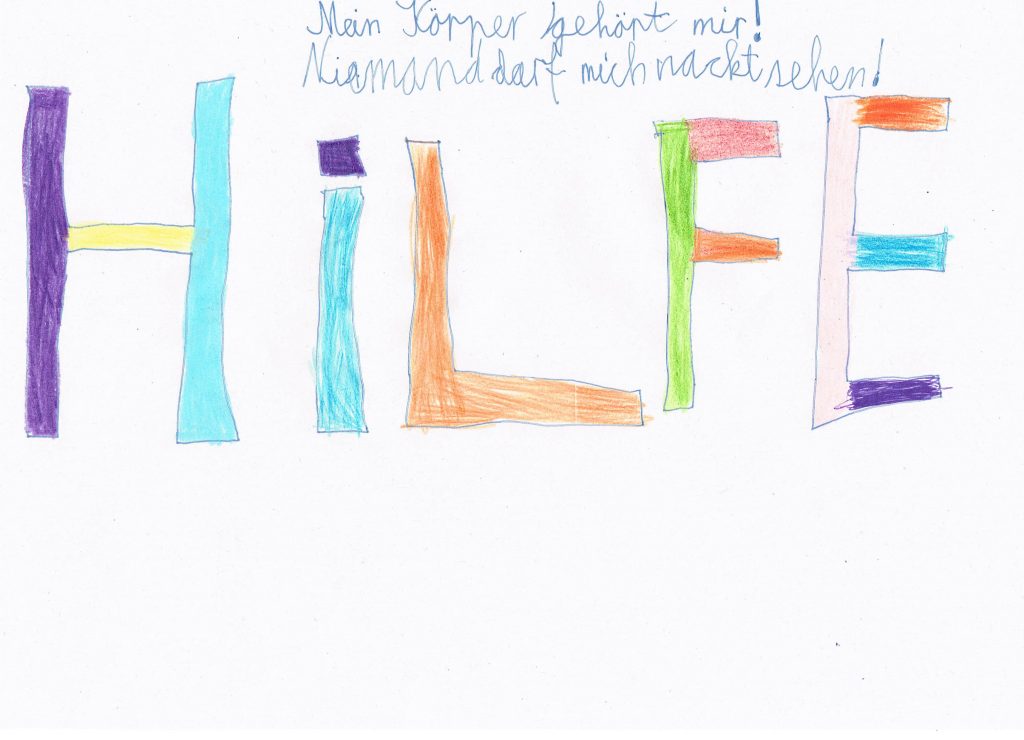 Mein Körper gehört mir!
Niemand darf mich nackt sehen!
HiLFE